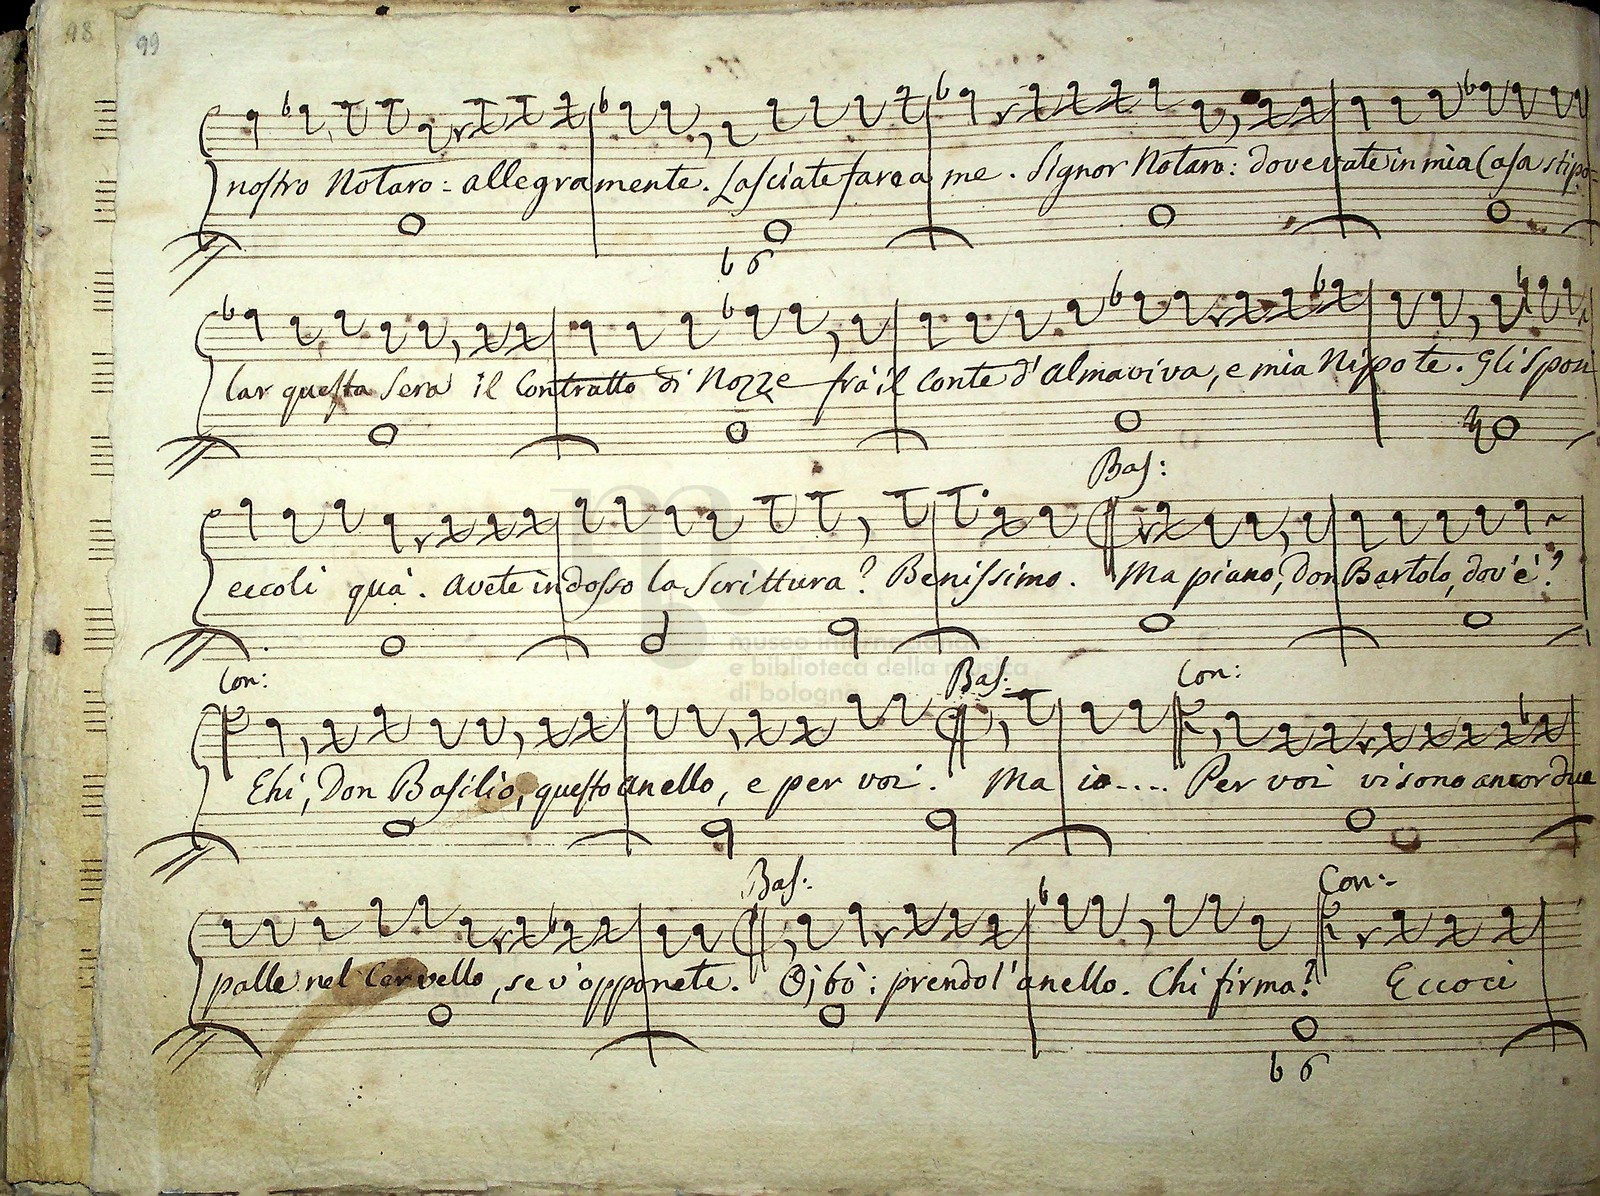 98 99
nostro Notaro: allegramente. Lasciate fare a me. Signor Notaro: dovevate in mia Casa stipo=
b 6
lar questa sera il Contratto di Nozze frà il Conte d'Almaviva, e mia Nipote. Gli sposi
Bas:
eccoli quà. Avete indosso la Scrittura? Benissimo. Ma piano, Don Bartolo, dov'è?
Con: Bas: Con:
Ehi, Don Basilio, questo anello, e per voi. Ma io.... Per voi vi sono ancor due
Bas: Con:
palle nel Cervello, se v'opponete. Oibò: prendo l'anello. Chi firma? Eccoci
b 6
museo internazionale
e biblioteca della musica
di bologna